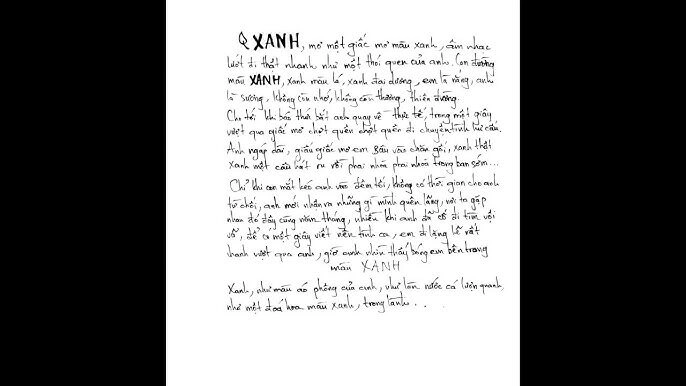 XANH, mơ một giấc mơ màu xanh, âm nhạc
lướt đi thật nhanh như một thói quen của anh. Con đường
màu XANH, xanh màu lá, xanh đại dương, em là nắng, anh
là sương, không còn nhớ, không còn thương, thiên đường..
Cho tới khi báo thức bắt anh quay về thực tế, trong một giây
vượt qua giấc mơ chợt quên chợt quên đi chuyện tình lúc đầu.
Anh ngáp dài, giấu giấc mơ em sâu vào chăn gối, xanh thật
xanh một câu hát ru rồi phai nhòa phai nhòa trong ban sớm...
Chỉ khi con mắt kéo anh vào đêm tối, không có thời gian cho anh
từ chối, anh mới nhận ra những gì mình quên lãng, rồi ta gặp
nhau đó đây cùng năm tháng, nhiều khi anh đã cố đi tìm vội
vã, để cả một giây viết nên tình ca, em đi lặng lẽ rất
nhanh vượt qua anh, giờ anh nhìn thấy bóng em bên trong
màu XANH
Xanh, như màu áo phông của anh, như làn nước cá lượn quanh,
như một đoá hoa màu xanh, trong lành...